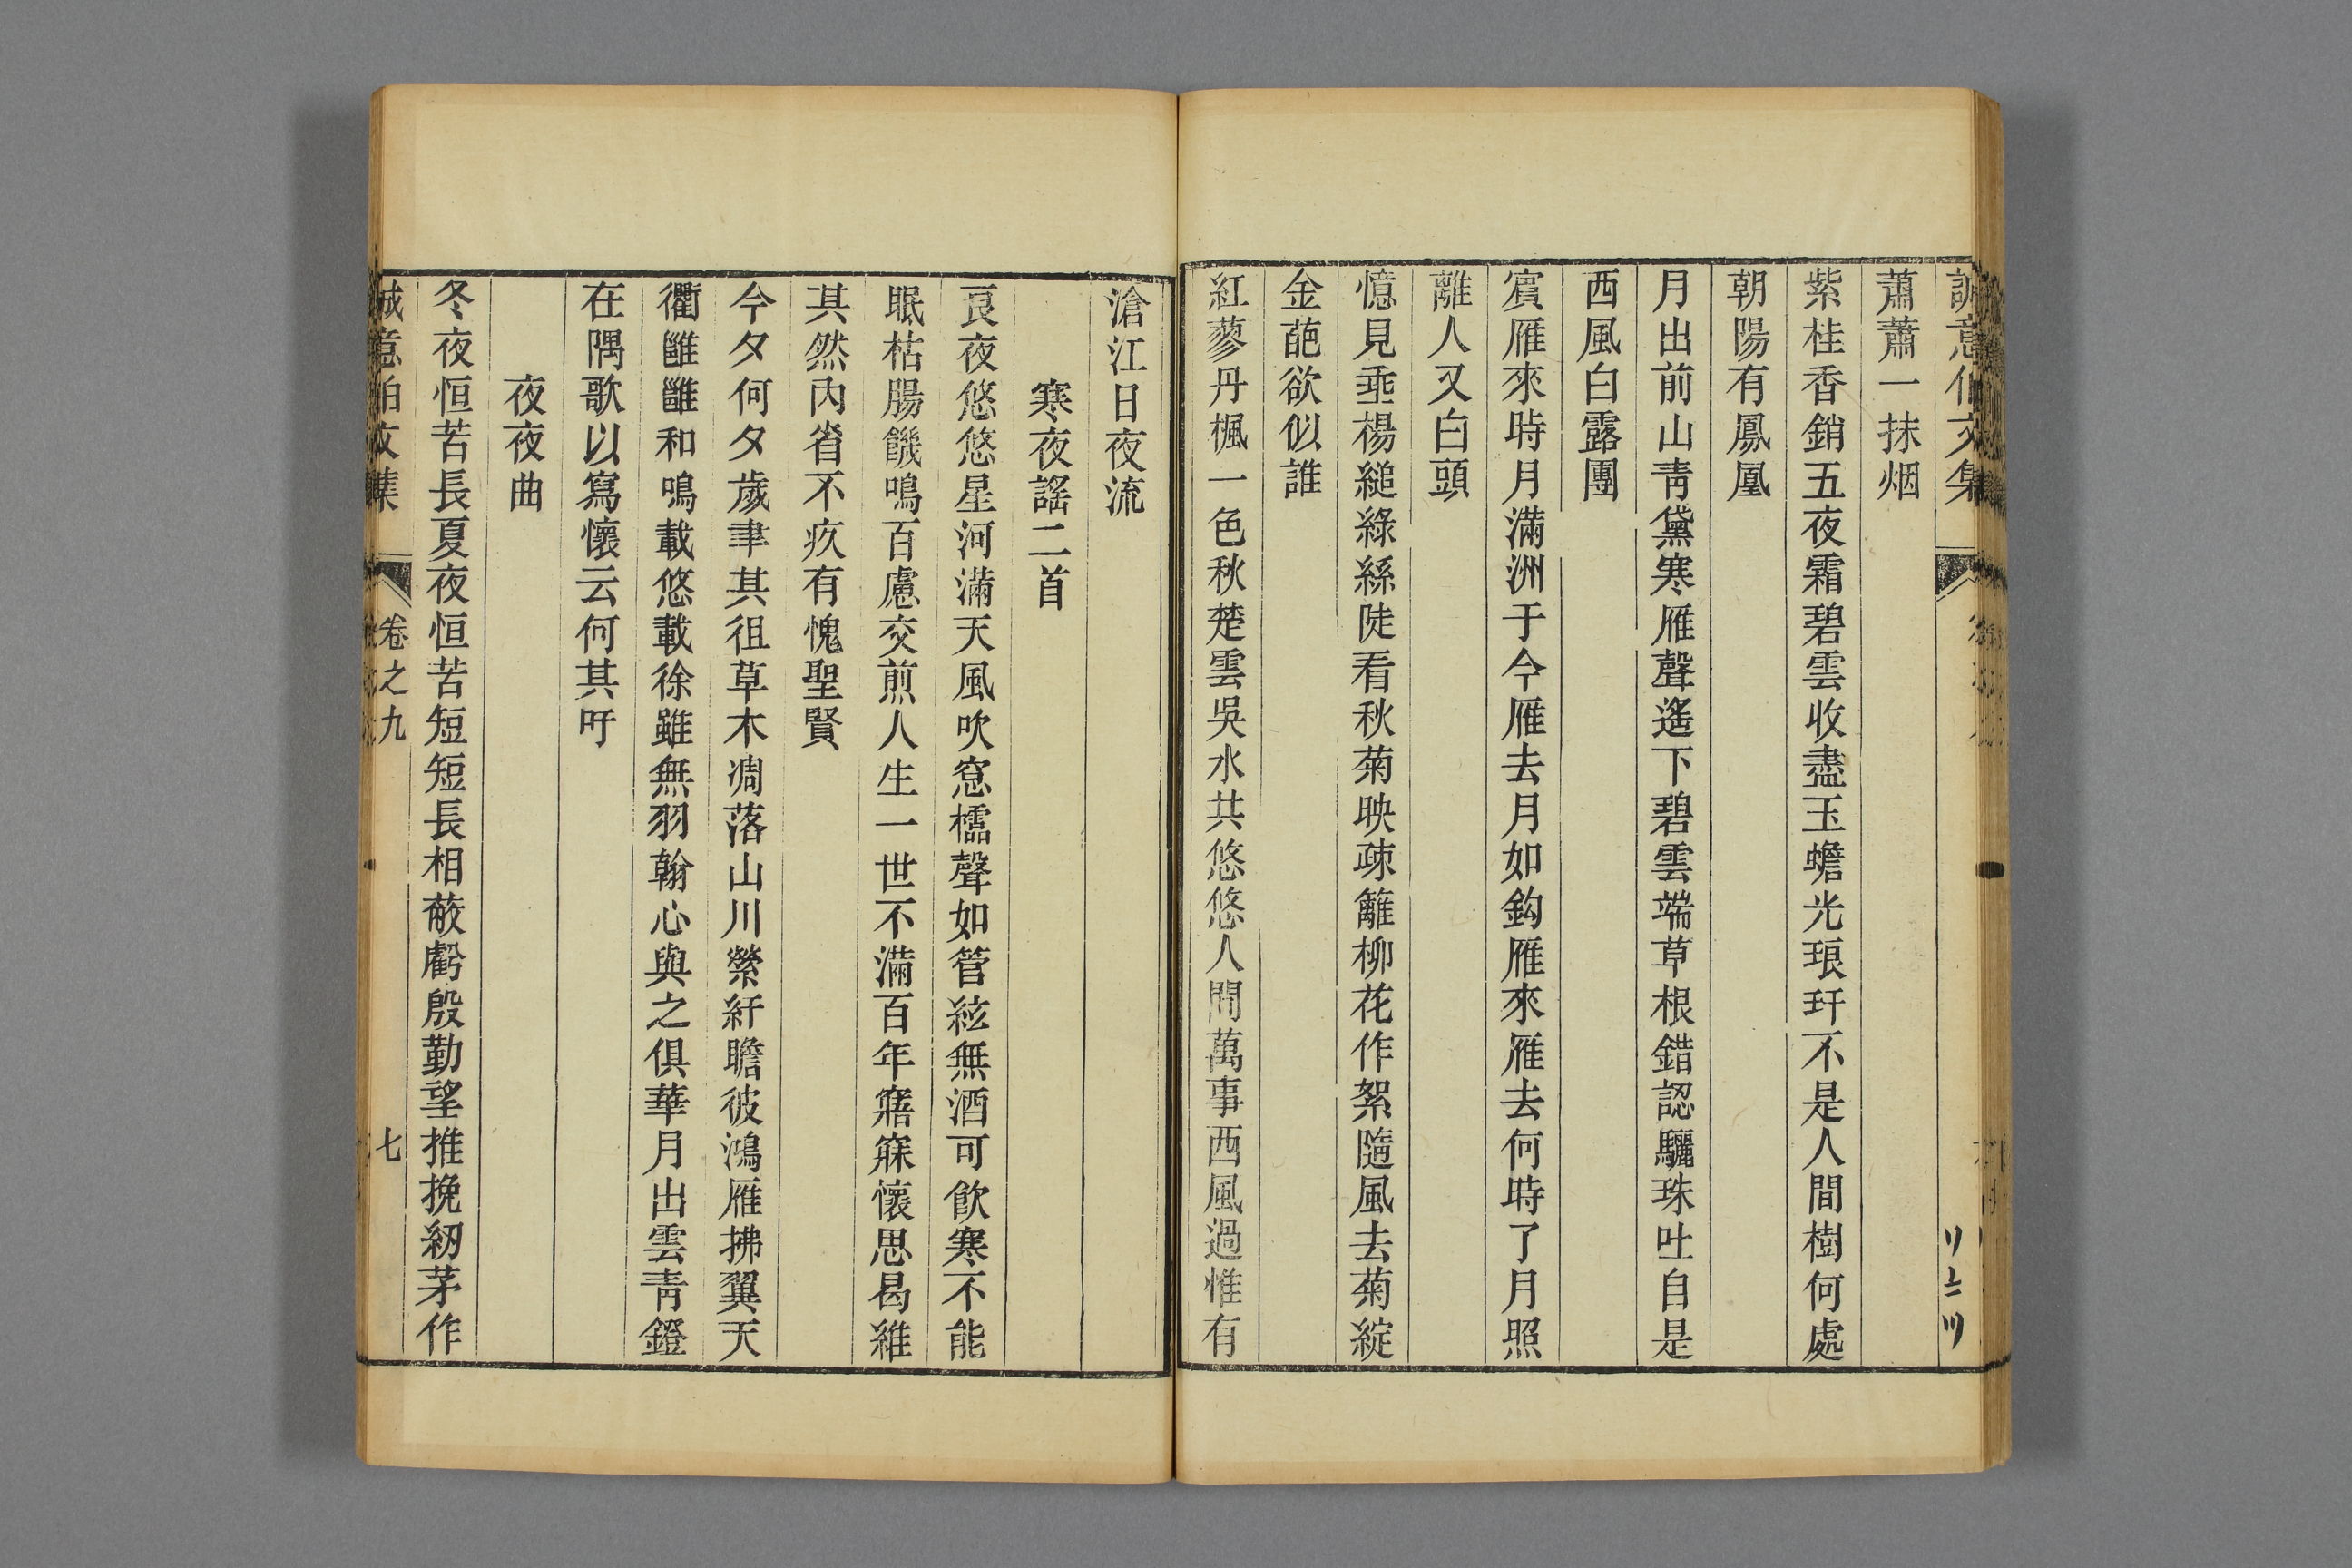 誠意伯文集
蕭蕭一抹烟
紫桂香銷五夜霜碧雲收盡玉蟾光琅玕不是人間樹何處
朝陽有鳳凰
月出前山青黛寒雁聲遙下碧雲端草根錯認驪珠吐自是
西風白露團
賓雁來時月滿洲于今雁去月如鈎雁來雁去何時了月照
離人又白頭
憶見垂楊縋綠絲陡看秋菊映疎籬柳花作絮隨風去菊綻
金葩欲似誰
紅蓼丹楓一色秋楚雲吳水共悠悠人間萬事西風過惟有
滄江日夜流
寒夜謠二首
良夜悠悠星河滿天風吹窓櫺聲如管絃無酒可飲寒不能
眠枯腸饑鳴百慮交煎人生一世不滿百年寤寐懷思曷維
其然內省不疚有愧聖賢
今夕何夕歲聿其徂草木凋落山川縈紆瞻彼鴻雁拂翼天
衢雝雝和鳴載悠載徐雖無羽翰心與之俱華月出雲青鐙
在隅歌以寫懷云何其吁
夜夜曲
冬夜恒苦長夏夜恒苦短短長相蔽虧殷勤望推挽紉茅作
誠意伯文集 卷之九 七